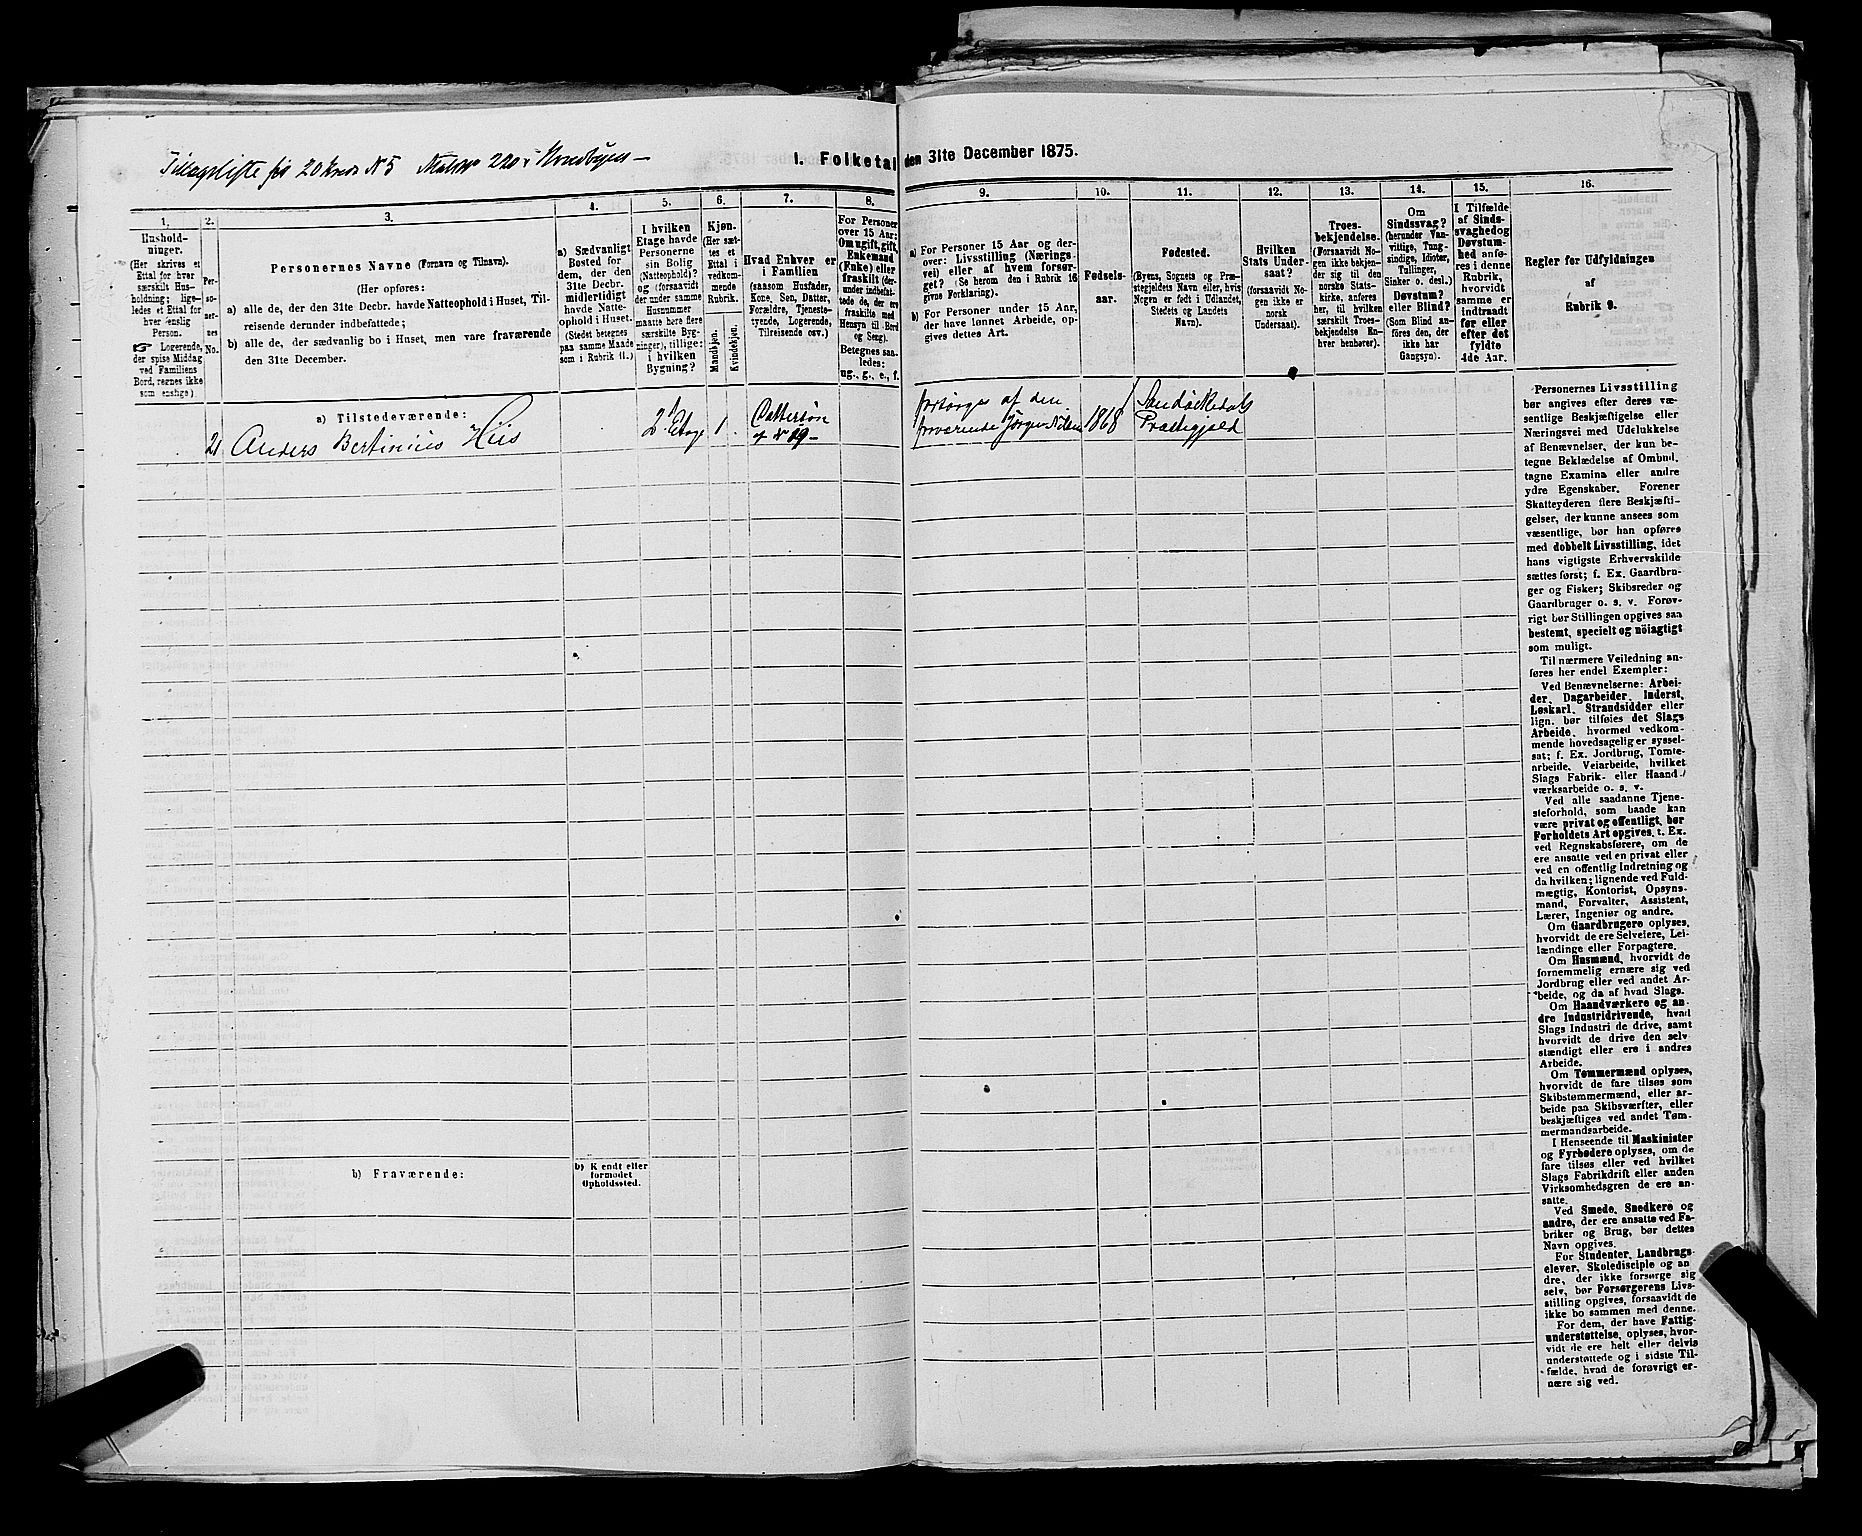 Tillægsliste for 20 Kreds N 5 Matr 220 i Nordbyen —
1. Folketal den 31te December 1875.
1.
Hushold-
ninger.
(Her skrives et
Ettal for hver
særskilt Hus-
holdning; lige-
ledes et Ettal for
hver enslig
Person.
☞ Logerende,
der spise Middag
ved Familiens
Bord, regnes ikke
som enslige).
2.
Per-
so-
ner-
nes
No.
3.
Personernes Navne (Fornavn og Tilnavn).
(Her opføres:
a) alle de, der den 31te Decbr. havde Natteophold i Huset, Til-
reisende derunder indbefattede;
b) alle de, der sædvanlig bo i Huset, men vare fraværende
den 31te December.
4.
a) Sædvanligt
Bosted for
dem, der den
31te Decbr.
midlertidigt
havde Natte-
ophold i Huset.
(Stedet betegnes
paa samme Maade
som i Rubrik 11.)
5.
I hvilken
Etage havde
Personerne
sin Bolig
(Natteophold)?
og (forsaavidt
der under samme
Husnummer
maatte høre flere
særskilte Byg-
ninger), tillige:
i hvilken
Bygning?
6.
Kjøn.
(Her sæt-
tes et
Ettal i
vedkom-
mende
Rubrik.
Mandkjøn.
Kvindekjøn.
7.
Hvad Enhver er
i Familien
(saasom Husfader,
Kone, Søn, Datter,
Forældre, Tjeneste-
tyende, Logerende,
Tilreisende osv.)
8.
For Personer
over 15 Aar:
Om ugift, gift,
Enkemand
(Enke) eller
fraskilt (der-
under indbefat-
tede de, der ere
fraskilte med
Hensyn til Bord
og Seng).
Betegnes saa-
ledes:
ug., g., e., f.
9.
a) For Personer 15 Aar og der-
over: Livsstilling (Nærings-
vei) eller af hvem forsør-
get? (Se herom den i Rubrik 16
givne Forklaring).
b) For Personer under 15 Aar,
der have lønnet Arbeide, op-
gives dettes Art.
10.
Fødsels-
aar.
11.
Fødested.
(Byens, Sognets og Præ-
stegjeldets Navn eller, hvis
Nogen er født i Udlandet,
Stedets og Landets
Navn).
12.
Hvilken
Stats Under-
saat?
(forsaavidt No-
gen ikke er
norsk
Undersaat).
13.
Troes-
bekjendelse.
(Forsaavidt No-
gen ikke bekjen-
der sig til den
norske Stats-
kirke, anføres
her, til hvilken
særskilt Troes-
bekjendelse En-
hver henhører).
14.
Om
Sindssvag?
(herunder Van-
vittige, Tung-
sindige, Idioter,
Tullinger,
Sinker o. desl.)
Døvstum?
eller Blind?
(Som Blind an-
føres den, der
ikke har
Gangsyn).
15.
I Tilfælde
af Sinds-
svaghed og
Døvstum-
hed anfø-
res i denne
Rubrik,
hvorvidt
samme er
indtraadt
før eller
efter det
fyldte
4de Aar.
16.
Regler for Udfyldningen
af
Rubrik 9.
a) Tilstedeværende:
21 Anders Bertinius Hiis 2d Etage 1 . 1868
fraværende Jørgen
forsørges af den
Sandøkedals
Præstegjeld
b) Fraværende:
b) Kendt eller
formodet
Opholdssted.
Personernes Livsstilling
bør angives efter deres væ-
sentlige Beskjæftigelse eller
Næringsvei med Udelukkelse
af Benævnelser, der kun be-
tegne Beklædelse af Ombud,
tagne Examina eller andre
ydre Egenskaber. Forener
Skatteyderen flere Beskjæfti-
gelser, der kunne ansees som
væsentlige, bør han opføres
med dobbelt Livsstilling, idet
hans vigtigste Erhvervskilde
sættes først; f. Ex. Gaardbru-
ger og Fisker; Skibsreder og
Gaardbruger o. s. v. Forøv-
rigt bør Stillingen opgives saa
bestemt, specielt og nöiagtigt
som muligt.
Til nærmere Veiledning an-
føres her endel Exempler:
Ved Benævnelserne: Arbei-
der, Dagarbeider, Inderst,
Løskarl, Strandsidder eller
lign. bør tilføies det Slags
Arbeide, hvormed vedkom-
mende hovedsagelig er syssel-
sat; f. Ex. Jordbrug, Tomte-
arbeide, Veiarbeide, hvilket
Slags Fabrik- eller Haand-
værksarbeide o. s. v.
Ved alle saadanne Tjene-
steforhold, som baade kan
være privat og offentligt, bør
Forholdets Art opgives, t. Ex.
ved Regnskabsførere, om de
ere ansatte ved en privat eller
ved en offentlig Indretning og
da hvilken; lignende ved Fuld-
mægtig, Kontorist, Opsyns-
mand, Forvalter, Assistent,
Lærer, Ingeniør og andre.
Om Gaardbrugere oplyses,
hvorvidt de ere Selveiere, Lei-
lændinge eller Forpagtere.
Om Husmænd, hvorvidt de
fornemmelig ernære sig ved
Jordbrug eller ved andet Ar-
beide, og da af hvad Slags.
Om Haandværkere og an-
dre Industridrivende, hvad
Slags Industri de drive, samt
hvorvidt de drive den selv-
stændigt eller ere i andres
Arbeide.
Om Tømmermænd oplyses,
hvorvidt de fare tilsøs som
Skibstømmermænd, eller ar-
beide paa Skibsværfter, eller
beskjæftiges ved andet Tøm-
mermandsarbeide.
I Henseende til Maskinister
og Fyrbødere oplyses, om de
fare tilsøs eller ved hvilket
Slags Fabrikdrift eller anden
Virksomhedsgren de ere an-
satte.
Ved Smede, Snedkere og
andre, der ere ansatte ved Fa-
briker og Brug, bør dettes
Navn opgives.
For Studenter, Landbrugs-
elever, Skoledisciple og an-
dre, der ikke forsørge sig
selv, bør Forsørgerens Livs-
stilling opgives, forsaavidt de
ikke bo sammen med denne.
For dem, der have Fattig-
understøttelse, oplyses, hvor-
vidt de ere helt eller delvis
understøttede og i sidste Til-
fælde, hvad de forøvrigt er-
nære sig ved.